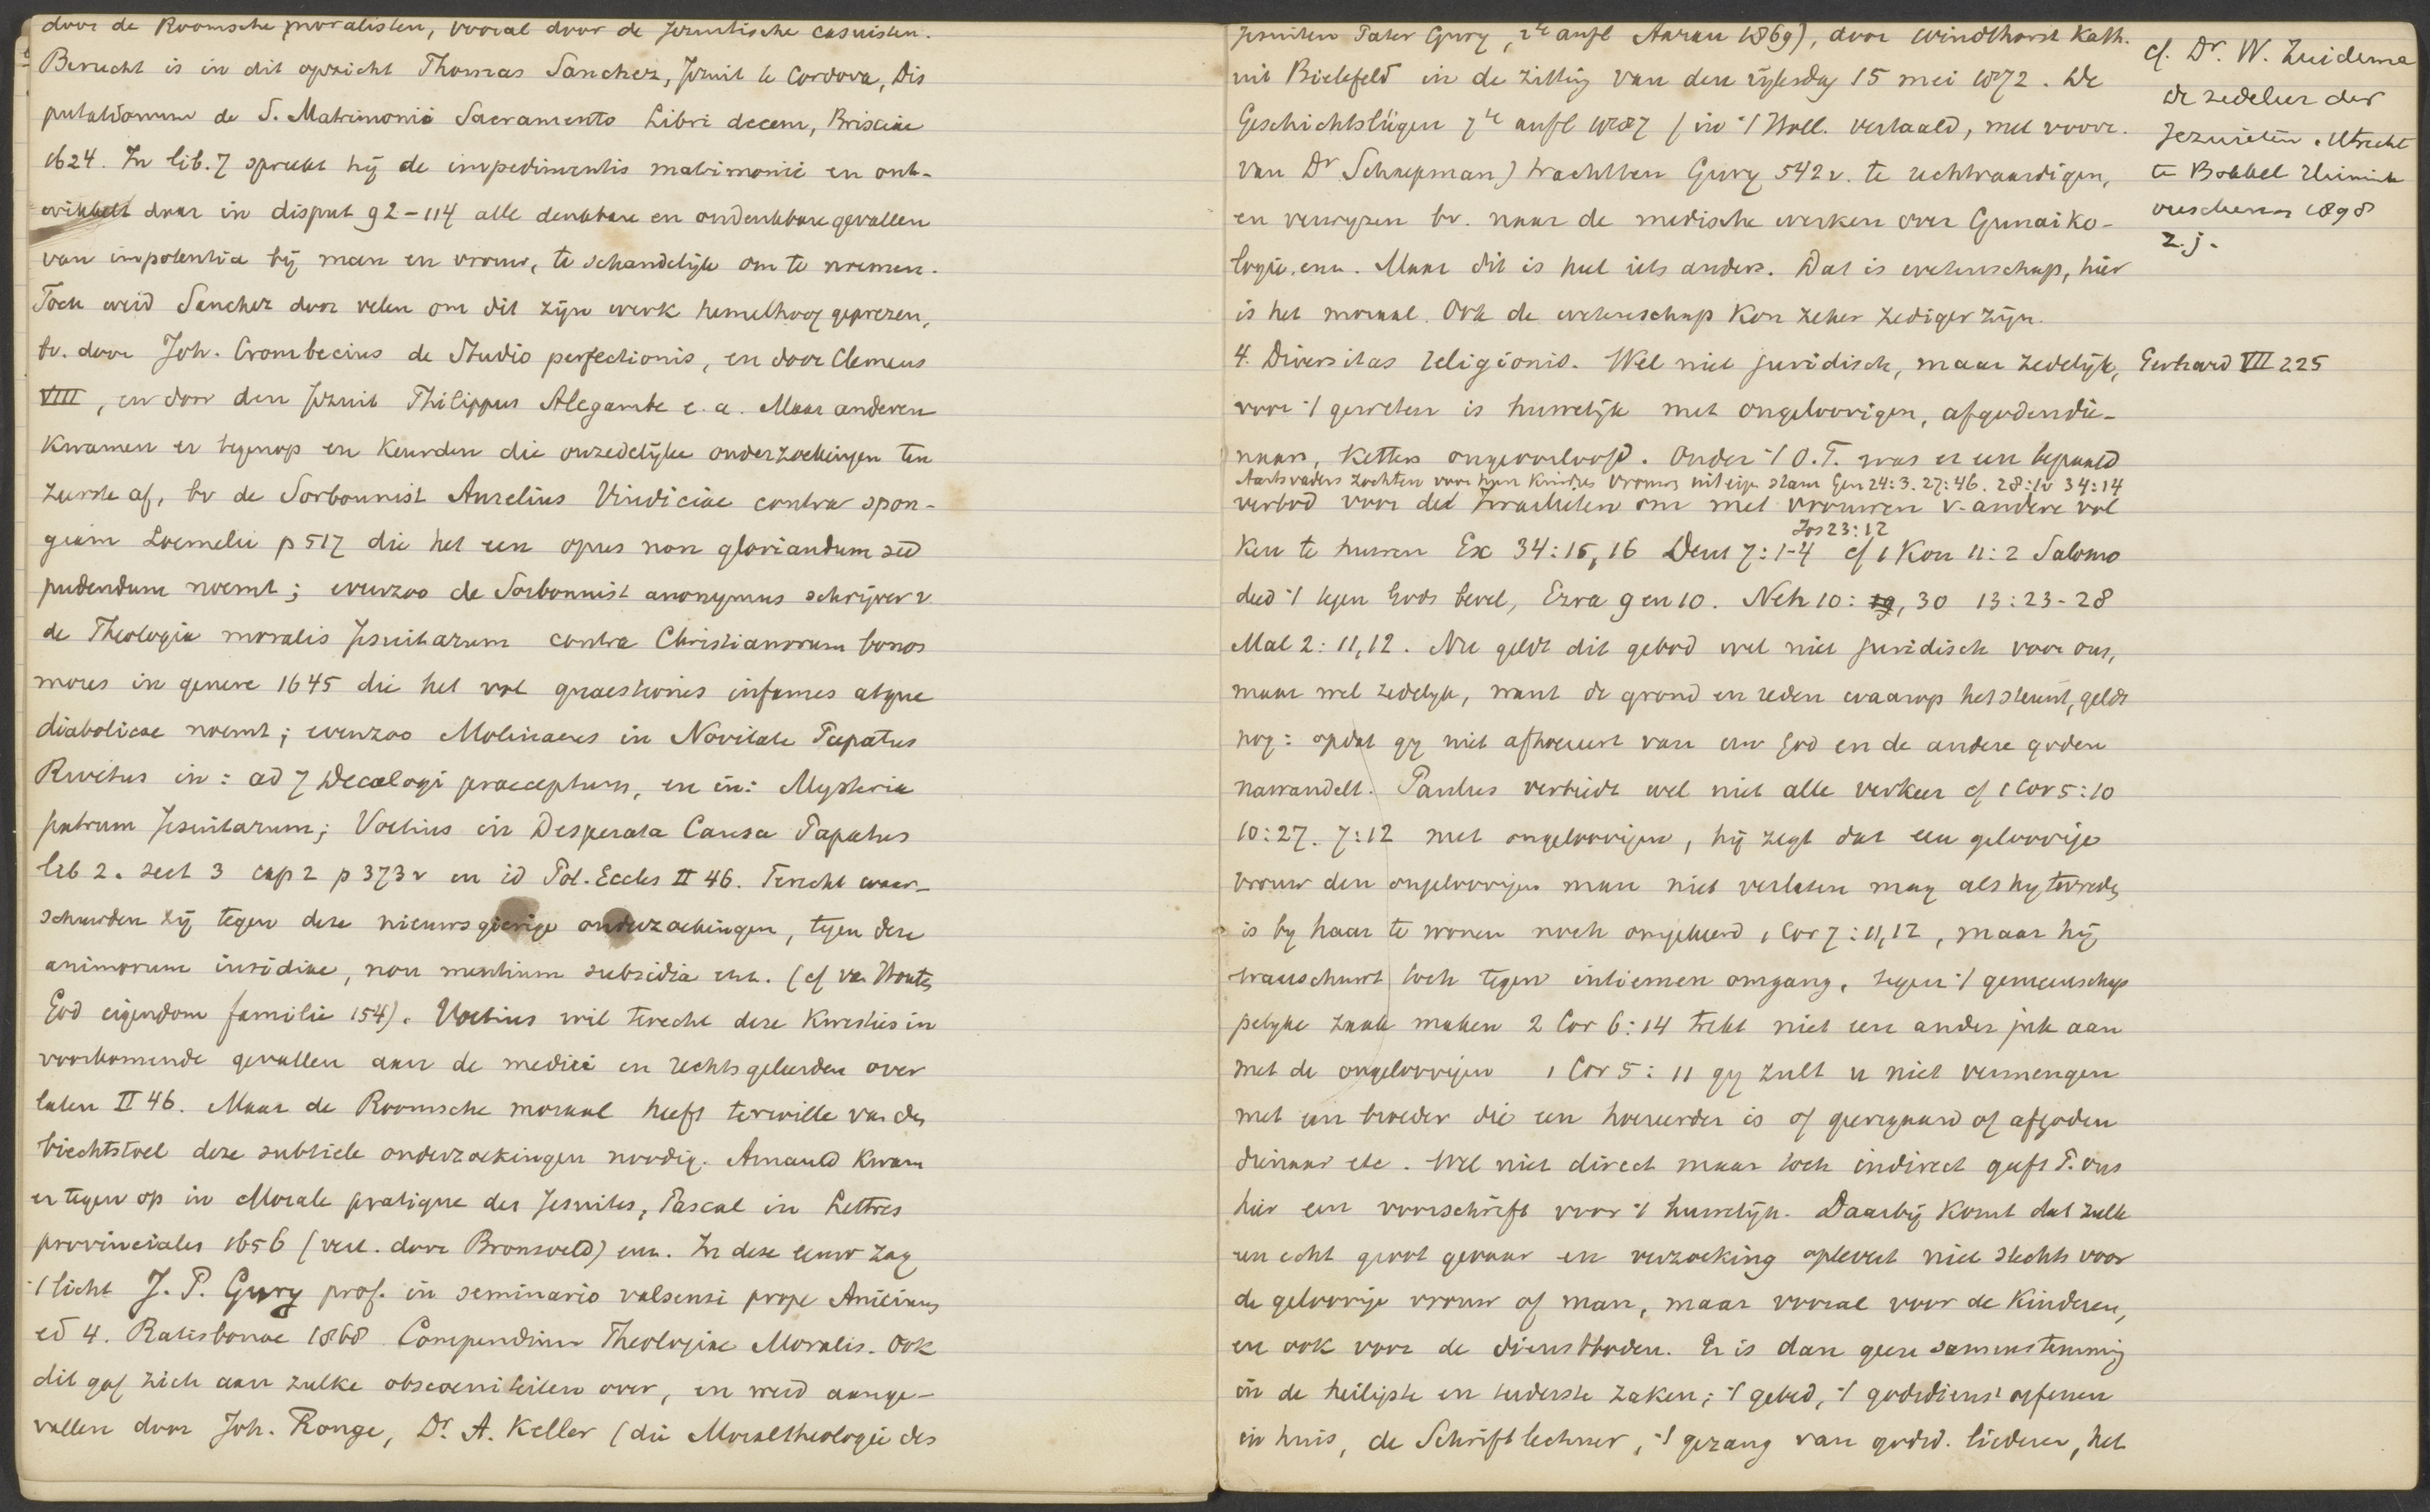 door de Roomsche moralisten, vooral door de Jezuitische casuisten.
Berucht is in dit opzicht Thomas Sanchez, Jezuit te Cordova, Dis
putationum de S. Matrimonii Sacramento Libri decem, Brisciae
1624. In lib. 7 spreekt hij de impedimentis matrimonii en ont-
wikkelt daar in disput 92-114 alle denkbare en ondenkbare gevallen
van impotentia bij man en vrouw, te schandelijk om te noemen.
Toch werd Sanchez door velen om dit zijn werk hemelhoog geprezen,
bv. door Joh. Crombecius de Studio perfectionis, en door Clemens
VIII, en door den Jezuit Philippus Alegambe e. a. Maar anderen
kwamen er tegenop en keurden die onzedelijke onderzoekingen ten
zeerste af, bv de Sorbonnist Aurelius Vindiciae contra spon-
giam Loemelii p 517 die het een opus non gloriandum sed
pudendum noemt; evenzoo de Sorbonnist anonymus schrijver v.
de Theologia moralis Jesuitarum contra Christianorum bonos
mores in genere 1645 die het vol quaestiones infames atque
diabolicae noemt; evenzoo Molinaeus in Novitate Papatus
Rivetus in: ad 7 Decalogi praeceptum, en in: Mysteria
patrum Jesuitarum; Voetius in Desperata Causa Papatus
lib 2. sect 3 cap 2 p 373 v en id Pol. Eccles II 46. Terecht waar-
schuwden zij tegen deze nieuwsgierige onderzoekingen, tegen deze
animorum insidiae, non mentium subsidia enz. (cf van Houten
God eigendom familie 154). Voetius wil terecht deze kwesties in
voorkomende gevallen aan de medici en rechtsgeleerden over
laten II 46. Maar de Roomsche moraal heeft terwille van den
biechtstoel deze subtiele onderzoekingen noodig. Arnauld kwam
er tegen op in Morale pratique des Jesuites, Pascal in Lettres
provinciales 1656 (vert. door Bronsveld) enz. In deze eeuw zag
't licht J. P. Gury prof. in seminario valsensi prope Anicium
ed 4. Ratisbonae 1868 Compendium Theologiae Moralis. Ook
dit gaf zich aan zulke obscoeniteiten over, en werd aange-
vallen door Joh. Ronge, Dr. A. Keller (die Moraltheologie des
Jesuiten Pater Gury, 2te aufl Aarau 1869), door Windthorst Kath.
uit Bielefeld in de zitting van den rijksdag 15 mei 1872. De
Geschichtslügen 7te aufl 1887 (in 't Holl. vertaald, met voorr.
van Dr Schaepman) trachtten Gury 542 v. te rechtvaardigen,
en verwijzen bv. naar de medische werken over Gunaiko-
logie. enz. Maar dit is heel iets anders. Dat is wetenschap, hier
is het moraal. Ook de wetenschap kon zeker zediger zijn.
4. Diversitas religionis. Wel niet juridisch, maar zedelijk,
voor 't geweten is huwelijk met ongeloovigen, afgodendie-
naars, ketters ongeoorloofd. Onder 't O.T. was er een bepaald
Aartsvaders zochten voor hun kindres vrouws uit eign stam Gen 24:3. 27:46. 28:1v 34:14
verbod voor de Israelieten om met vrouwen v. andere vol
Jos 23:12
ken te huwen Ex 34:15, 16 Deut 7:1-4 cf 1 Kon 11:2 Salomo
deed 't tegen Gods bevel, Ezra 9 en 10. Neh 10: 30 13:23-28
Mal 2:11,12. Nu geldt dit gebod wel niet juridisch voor ons,
maar wel zedelijk, want de grond en reden waarop het steunt, geldt
nog: opdat gij niet afhoereert van uw God en de andere goden
nawandelt. Paulus verbiedt wel niet alle verkeer cf 1 Cor 5:10
10:27. 7:12 met ongeloovigen, hij zegt dat een geloovige
vrouw den ongeloovigen man niet verlaten mag als hij tevreden
is bij haar te wonen noch omgekeerd 1 Cor 7:11,12, maar hij
waarschuwt toch tegen intiemen omgang, tegen 't gemeenschap
pelijke zaak maken 2 Cor 6:14 trekt niet een ander juk aan
met de ongeloovigen 1 Cor 5:11 gij zult u niet vermengen
met een broeder die een hoereerder is of gierigaard of afgoden
dienaar etc. Wel niet direct maar toch indirect geeft P. ons
hier een voorschrift voor 't huwelijk. Daarbij komt dat zulk
een echt groot gevaar en verzoeking oplevert niet slechts voor
de geloovige vrouw of man, maar vooral voor de kinderen,
en ook voor de dienstboden. Er is dan geen samenstemming
in de heiligste en teederste zaken; 't gebed, 't godsdienst oefenen
in huis, de Schriftlectuur, 't gezang van godsd. liederen, het
cf. Dr. W. Zuidema
de zedeleer der
Jezuieten. Utrecht
verschenen 1898
z. j.
Gerhard VII 225